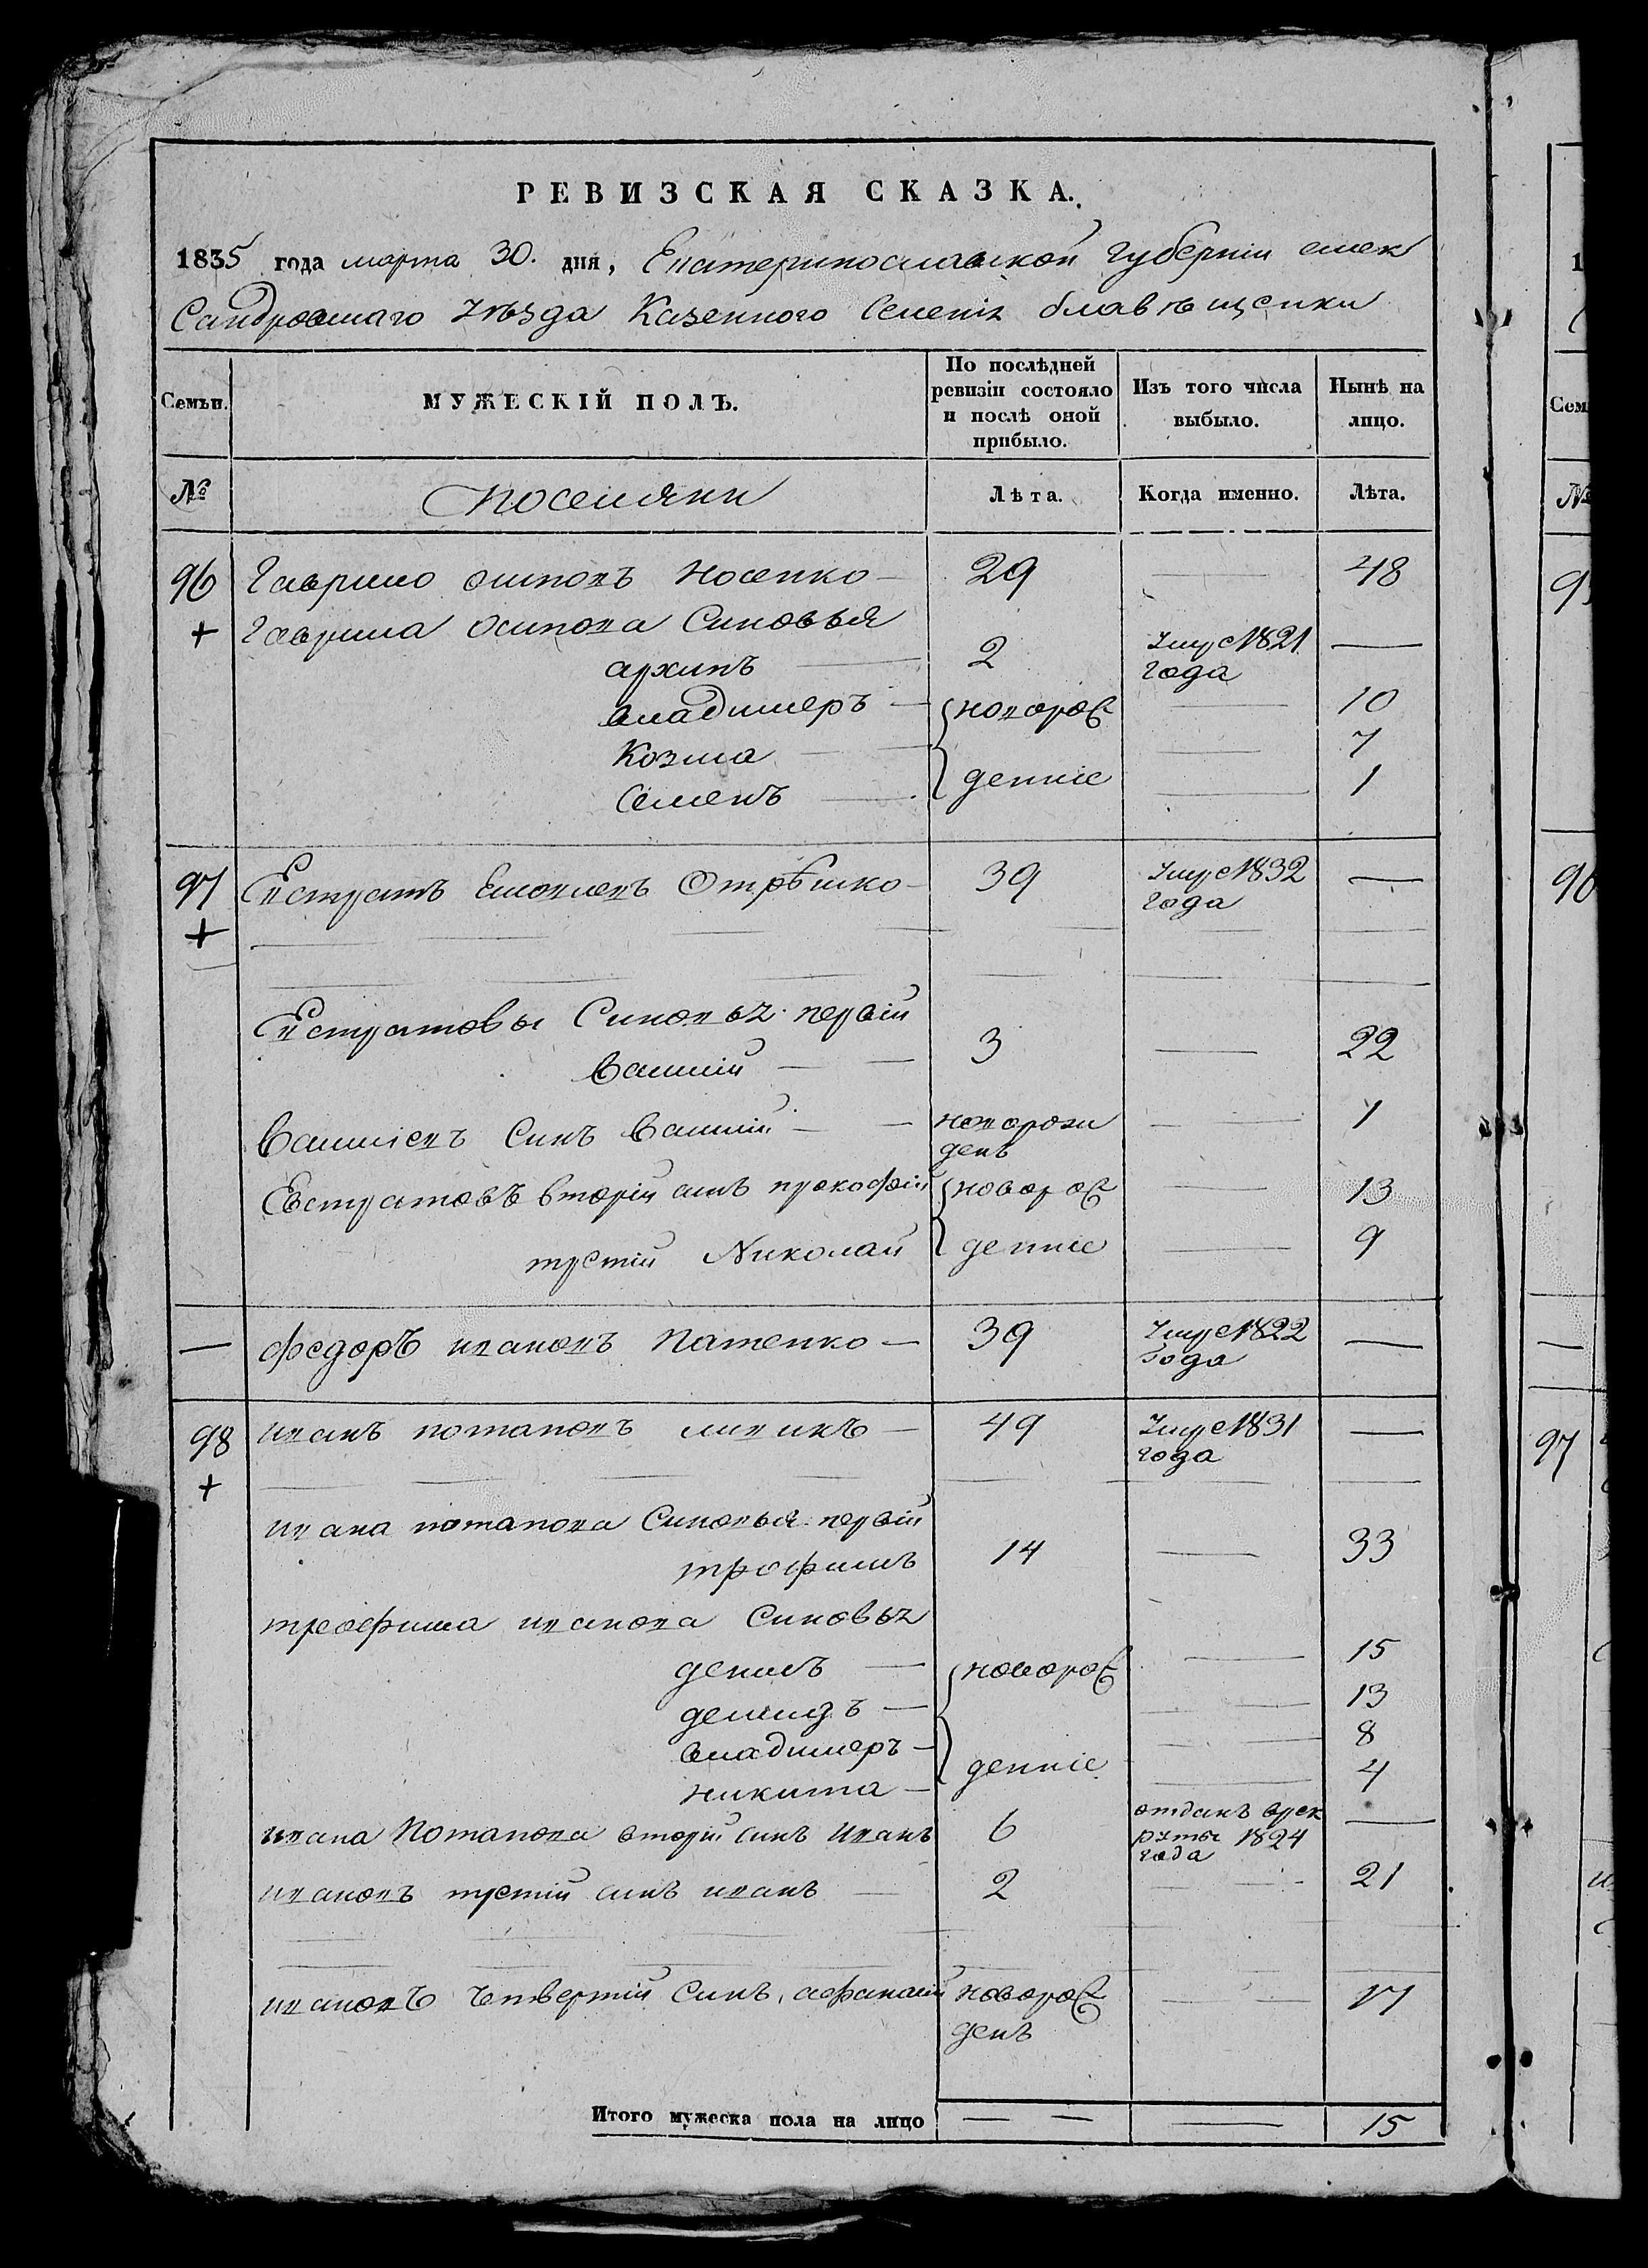 РЕВИЗСКАЯ СКАЗКА.
1835 года марта 30. дня, Екатеринославской губернии алек
Сандровшаго уѣзда Казенного Селения благовѣщенки
Семьи.
МУЖЕСКІЙ ПОЛЪ.
По послѣдней ревизіи состояло и послѣ оной прибыло.
Изъ того числа выбыло.
Нынѣ на лицо.
№
поселяни
Лѣта.
Когда именно.
Лѣта.
96 Гаврило осиповъ Носенко — 29 — 48
+ Гаврила осипова Синовья
архипъ — 2 Умре 1821 года —
владимеръ — новорож 10
Козма — 7
Семенъ — деніе 1
97 Евстратъ Отрѣшко — 39 Умре 1832 года —
+
Евстратовы Синовья первій
Василій — 3 — 22
Василіевъ Синъ Василій — новорожденъ — 1
Евстратовъ вторій синъ прокофій новорож — 13
третій Николай денние — 9
— федоръ ивановъ Патенко — 39 Умре 1822 года —
98 иванъ потаповъ — 49 Умре 1831 года —
+
ивана потапова Синовья первій
трофимъ 14 — 33
трофима иванова Синовья
денисъ — новорож — 15
демидъ — 13
владимеръ — 8
никита — деніе — 4
ивана Потапова вторій синъ иванъ 6 отданъ врекруты 1824 года —
ивановъ третій синъ иванъ — 2 — 21
ивановъ Четвертій Синъ, афанасій новорож денъ — 17
Итого мужеска пола на лицо — — — 15